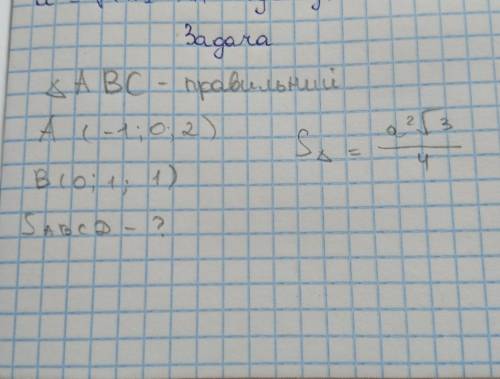 Задача
△ABC - правильний
A (-1; 0; 2)
B(0; 1; 1)
S ABCD - ?
S△ = a²√3 / 4